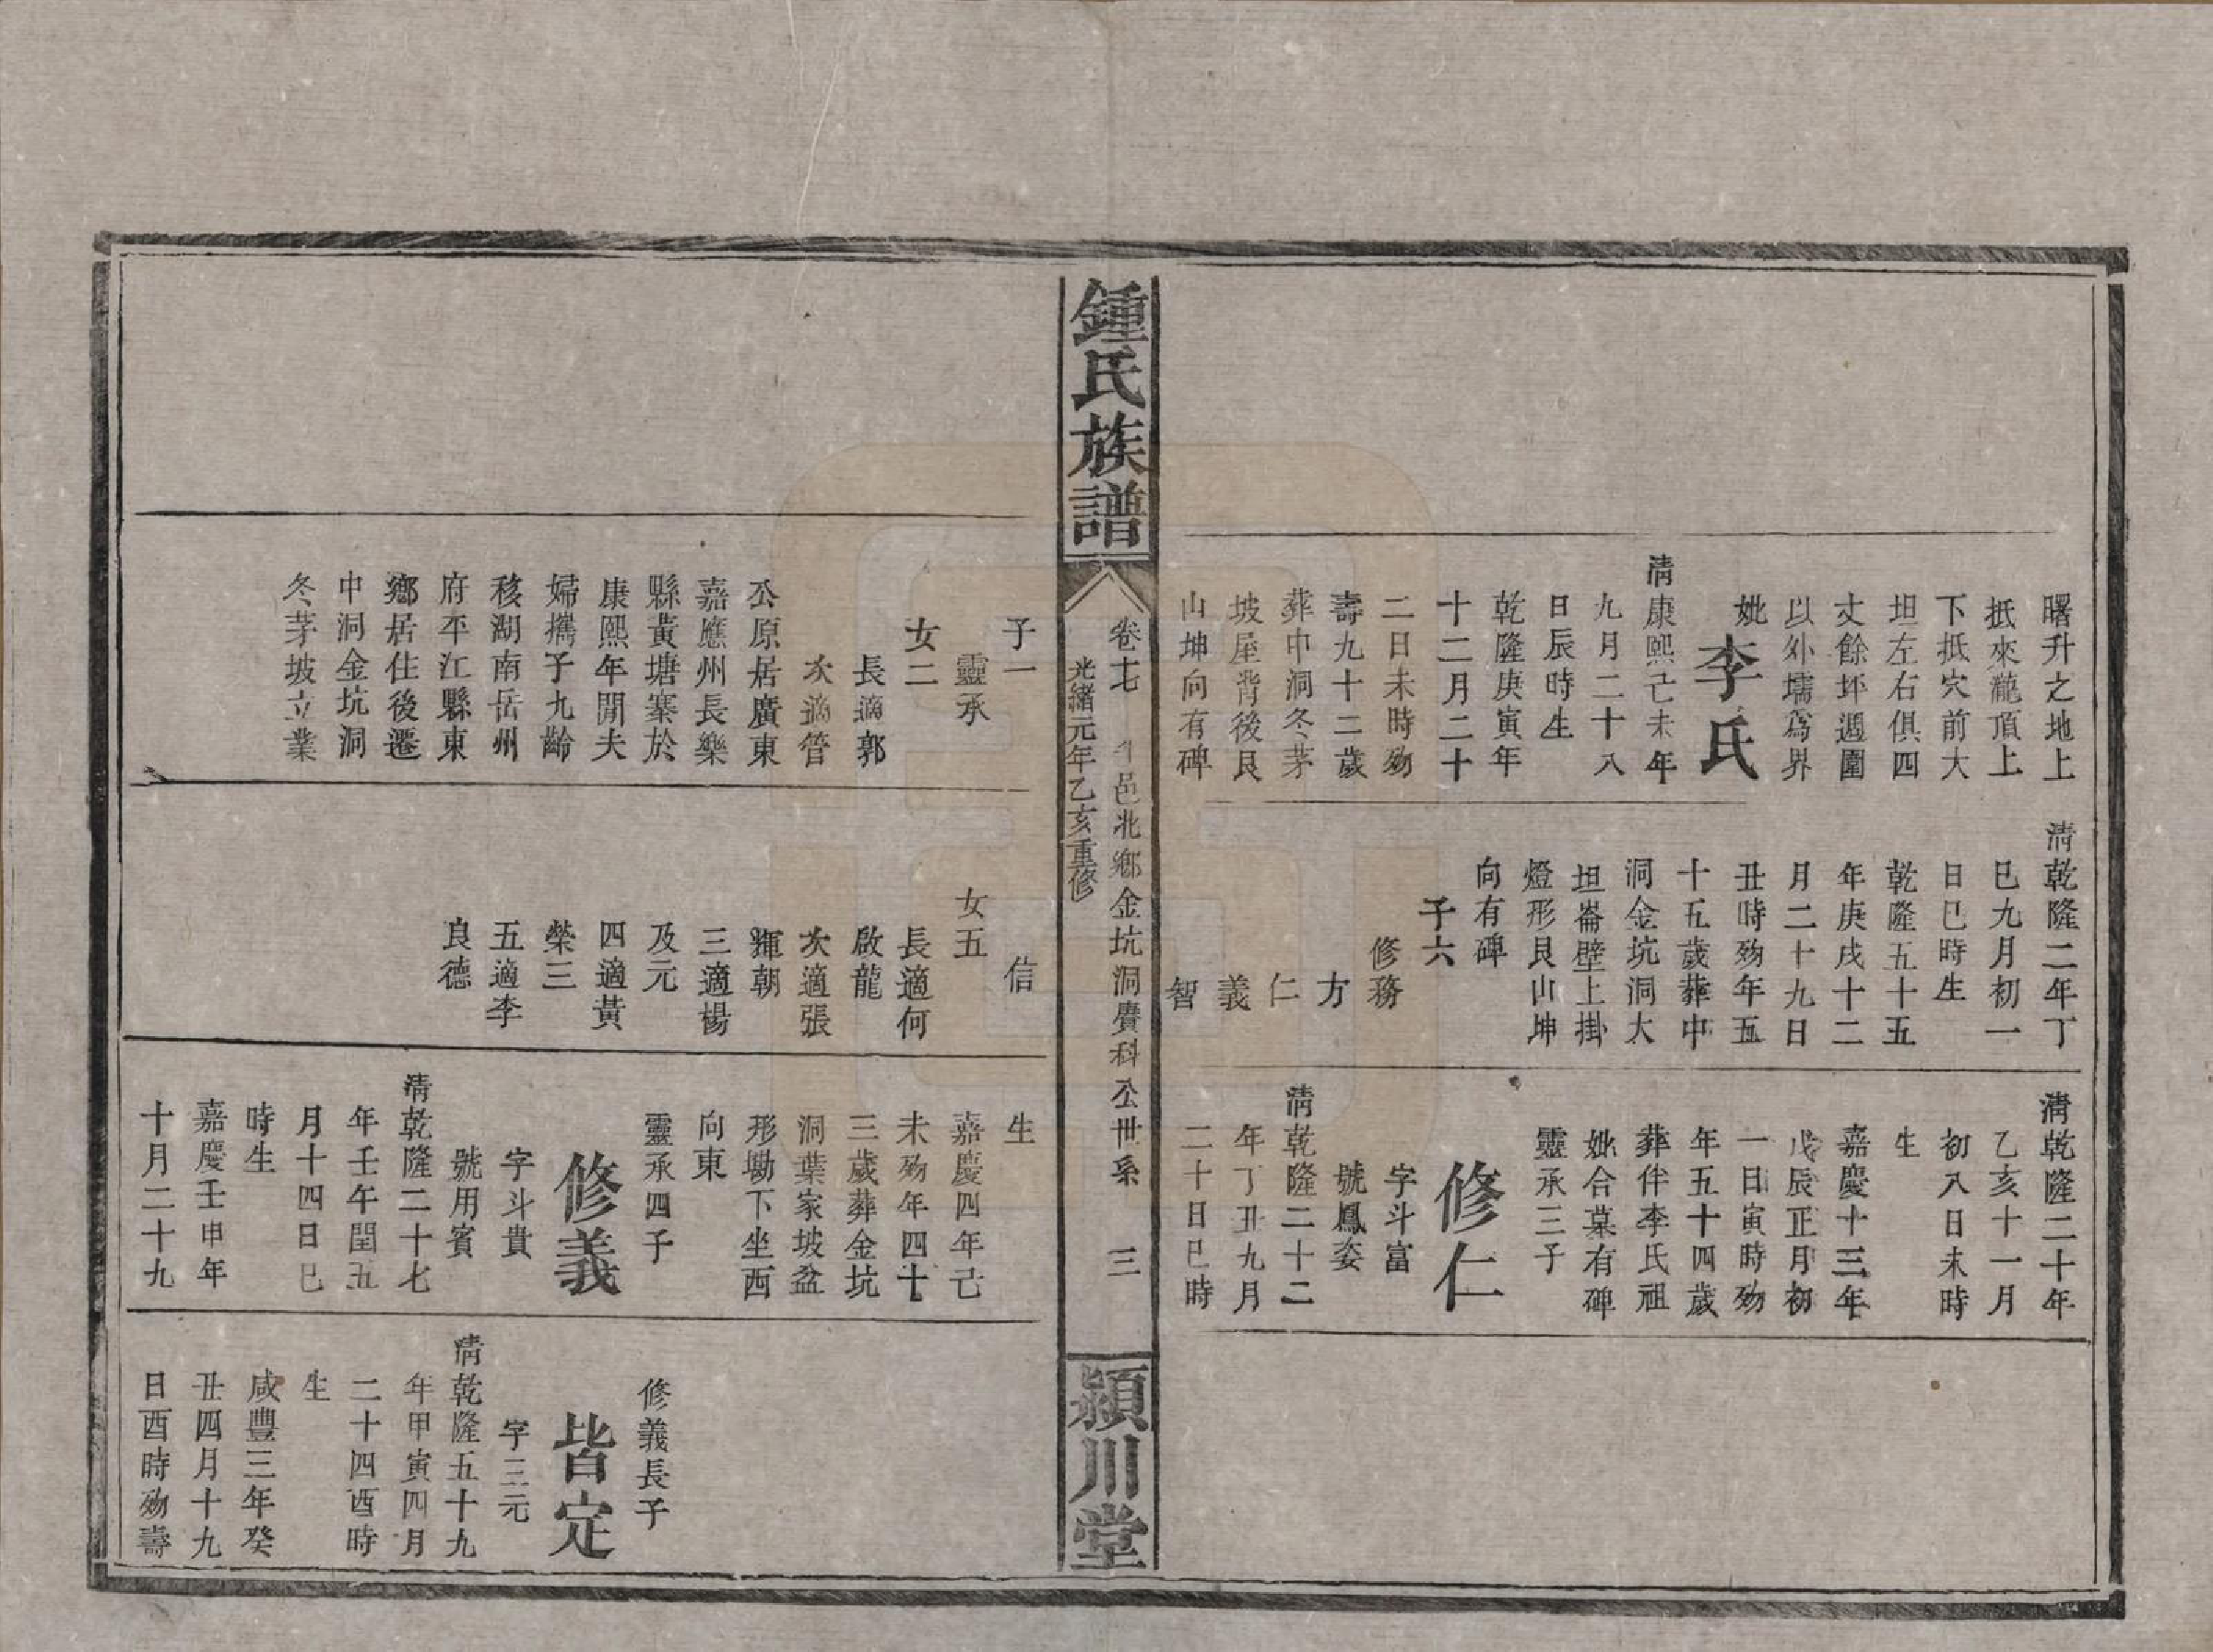 曙升之地上
抵來龍頂上
下抵穴前大
坦左右俱四
丈餘坏週圍
以外壖為界
妣
李氏
清康熙己未年
九月二十八
日辰時生
乾隆庚寅年
十二月二十
二日未時歿
壽九十二歲
葬中洞冬茅
坡屋背後艮
山坤向有碑
清乾隆二年丁
巳九月初一
日巳時生
乾隆五十五
年庚戌十二
月二十九日
丑時歿年五
十五歲葬中
洞金坑洞大
坦崙壁上掛
燈形艮山坤
向有碑
子六
修務
方
仁
義
智
清乾隆二十年
乙亥十一月
初八日未時
生
嘉慶十三年
戊辰正月初
一日寅時歿
年五十四歲
葬伴李氏祖
妣合墓有碑
靈承三子
修仁
字斗富
號鳳姿
清乾隆二十二
年丁丑九月
二十日巳時
鍾氏族譜
卷七
平邑北鄉金坑洞賡科公世系
三
光緒元年乙亥重修
潁川堂
子一
靈承
女二
長適郭
次適管
公原居廣東
嘉應州長樂
縣黃塘寨於
康熙年間夫
婦攜子九齡
移湖南岳州
府平江縣東
鄉居住後遷
中洞金坑洞
冬茅坡立業
信
女五
長適何
啟龍
次適張
輝朝
三適楊
及元
四適黃
榮三
五適李
良德
生
嘉慶四年己
未歿年四十
三歲葬金坑
洞葉家坡盆
形墈下坐西
向東
靈承四子
修義
字斗貴
號用賓
清乾隆二十七
年壬午閏五
月十四日巳
時生
嘉慶壬申年
十月二十九
修義長子
皆定
字三元
清乾隆五十九
年甲寅四月
二十四酉時
生
咸豐三年癸
丑四月十九
日酉時歿壽